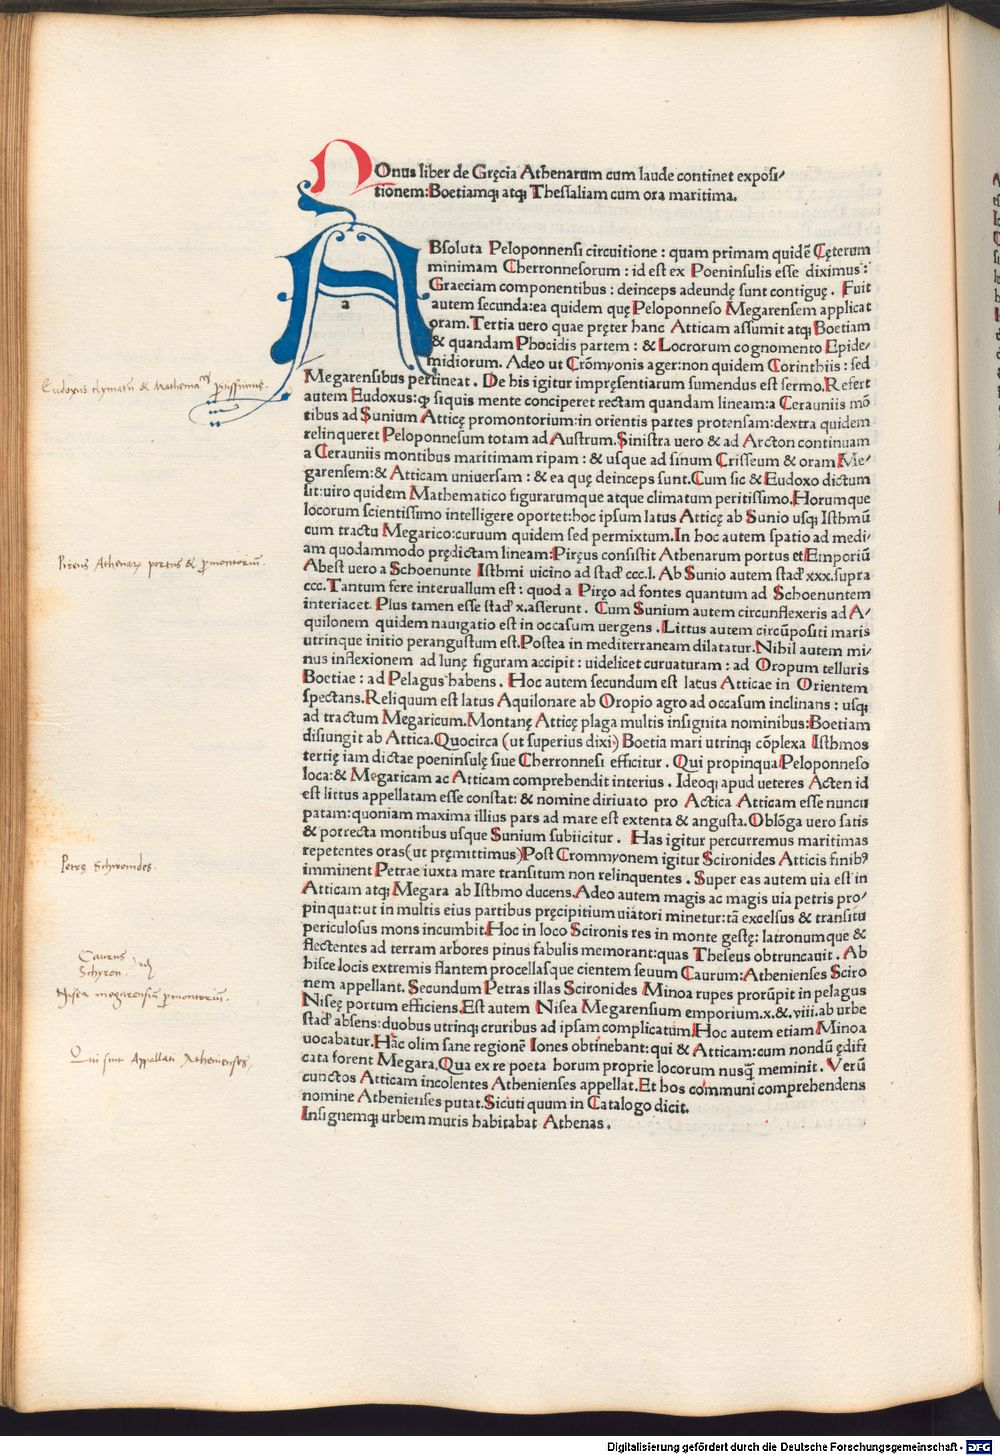 NOnus liber de Gręcia Athenarum cum laude continet exposi⸗
tionem: Boetiamq; atq; Thessaliam cum ora maritima.
ABsoluta Peloponnensi circuitione : quam primam quidē Cęterum
minimam Cherronnesorum : id est ex Poeninsulis esse diximus :
Graeciam componentibus : deinceps adeundę sunt contiguę . Fuit
autem secunda: ea quidem quę Peloponneso Megarensem applicat
oram. Tertia uero quae pręter hanc Atticam assumit atq; Boetiam
& quandam Phocidis partem : & Locrorum cognomento Epide⸗
midiorum. Adeo ut Crōmyonis ager: non quidem Corinthiis : sed
Megarensibus pertineat . De his igitur impręsentiarum sumendus est sermo. Refert
autem Eudoxus: ꝙ siquis mente conciperet rectam quandam lineam: a Cerauniis mō
tibus ad Sunium Atticę promontorium: in orientis partes protensam: dextra quidem
relinqueret Peloponnesum totam ad Austrum. Sinistra uero & ad Arcton continuam
a Cerauniis montibus maritimam ripam : & usque ad sinum Crisseum & oram Me⸗
garensem: & Atticam uniuersam : & ea quę deinceps sunt. Cum sic & Eudoxo dictum
sit: uiro quidem Mathematico figurarumque atque climatum peritissimo. Horumque
locorum scientissimo intelligere oportet: hoc ipsum latus Atticę ab Sunio usq; Isthmū
cum tractu Megarico: curuum quidem sed permixtum. In hoc autem spatio ad medi⸗
am quodammodo prędictam lineam: Pireus consistit Athenarum portus et Emporiū
Abest uero a Schoenunte Isthmi uicino ad stad̄ ccc.l. Ab Sunio autem stad̄ xxx. supra
ccc. Tantum fere interuallum est : quod a Piręo ad fontes quantum ad Schoenuntem
interiacet. Plus tamen esse stad̄ x. asserunt . Cum Sunium autem circunflexeris ad A⸗
quilonem quidem nauigatio est in occasum uergens . Littus autem circūpositi maris
utrinque initio perangustum est. Postea in mediterraneam dilatatur. Nihil autem mi⸗
nus inflexionem ad lunę figuram accipit : uidelicet curuaturam : ad Oropum telluris
Boetiae : ad Pelagus habens . Hoc autem secundum est latus Atticae in Orientem
spectans. Reliquum est latus Aquilonare ab Oropio agro ad occasum inclinans : usq;
ad tractum Megaricum. Montanę Atticę plaga multis insignita nominibus: Boetiam
disiungit ab Attica. Quocirca (ut superius dixi) Boetia mari utrinq; cōplexa Isthmos
tertię iam dictae poeninsulę siue Cherronnesi efficitur . Qui propinqua Peloponneso
loca: & Megaricam ac Atticam comprehendit interius . Ideoq; apud ueteres Acten id
est littus appellatam esse constat: & nomine diriuato pro Actica Atticam esse nuncu
patam: quoniam maxima illius pars ad mare est extenta & angusta. Oblōga uero satis
& porrecta montibus usque Sunium subiicitur . Has igitur percurremus maritimas
repetentes oras (ut pręmittimus) Post Crommyonem igitur Scironides Atticis finibꝰ
imminent Petrae iuxta mare transitum non relinquentes . Super eas autem uia est in
Atticam atq; Megara ab Isthmo ducens. Adeo autem magis ac magis uia petris pro⸗
pinquat: ut in multis eius partibus pręcipitium uiatori minetur: tā excelsus & transitu
periculosus mons incumbit. Hoc in loco Scironis res in monte gestę: latronumque &
flectentes ad terram arbores pinus fabulis memorant: quas Theseus obtruncauit . Ab
hisce locis extremis flantem procellasque cientem seuum Caurum: Athenienses Sciro
nem appellant. Secundum Petras illas Scironides Minoa rupes prorūpit in pelagus
Niseę portum efficiens. Est autem Nisea Megarensium emporium. x. &. viii. ab urbe
stad̄ absens: duobus utrinq; cruribus ad ipsam complicatum. Hoc autem etiam Minoa
uocabatur. Hāc olim sane regionē Iones obtinebant: qui & Atticam: cum nondū ędifi
cata forent Megara. Qua ex re poeta horum proprie locorum nusq̄ meminit . Verū
cunctos Atticam incolentes Athenienses appellat. Et hos communi comprehendens
nomine Athenienses putat. Sicuti quum in Catalogo dicit.
Insignemq; urbem muris habitabat Athenas .
a
Pireus Athenaꝝ portus & promontoriū.
Petrę Schironides.
Caurus
Schyron.
Nisea megarensiū promontoriū.
Qui sint Appellati Athenienses.
Digitalisierung gefördert durch die Deutsche Forschungsgemeinschaft - DFG